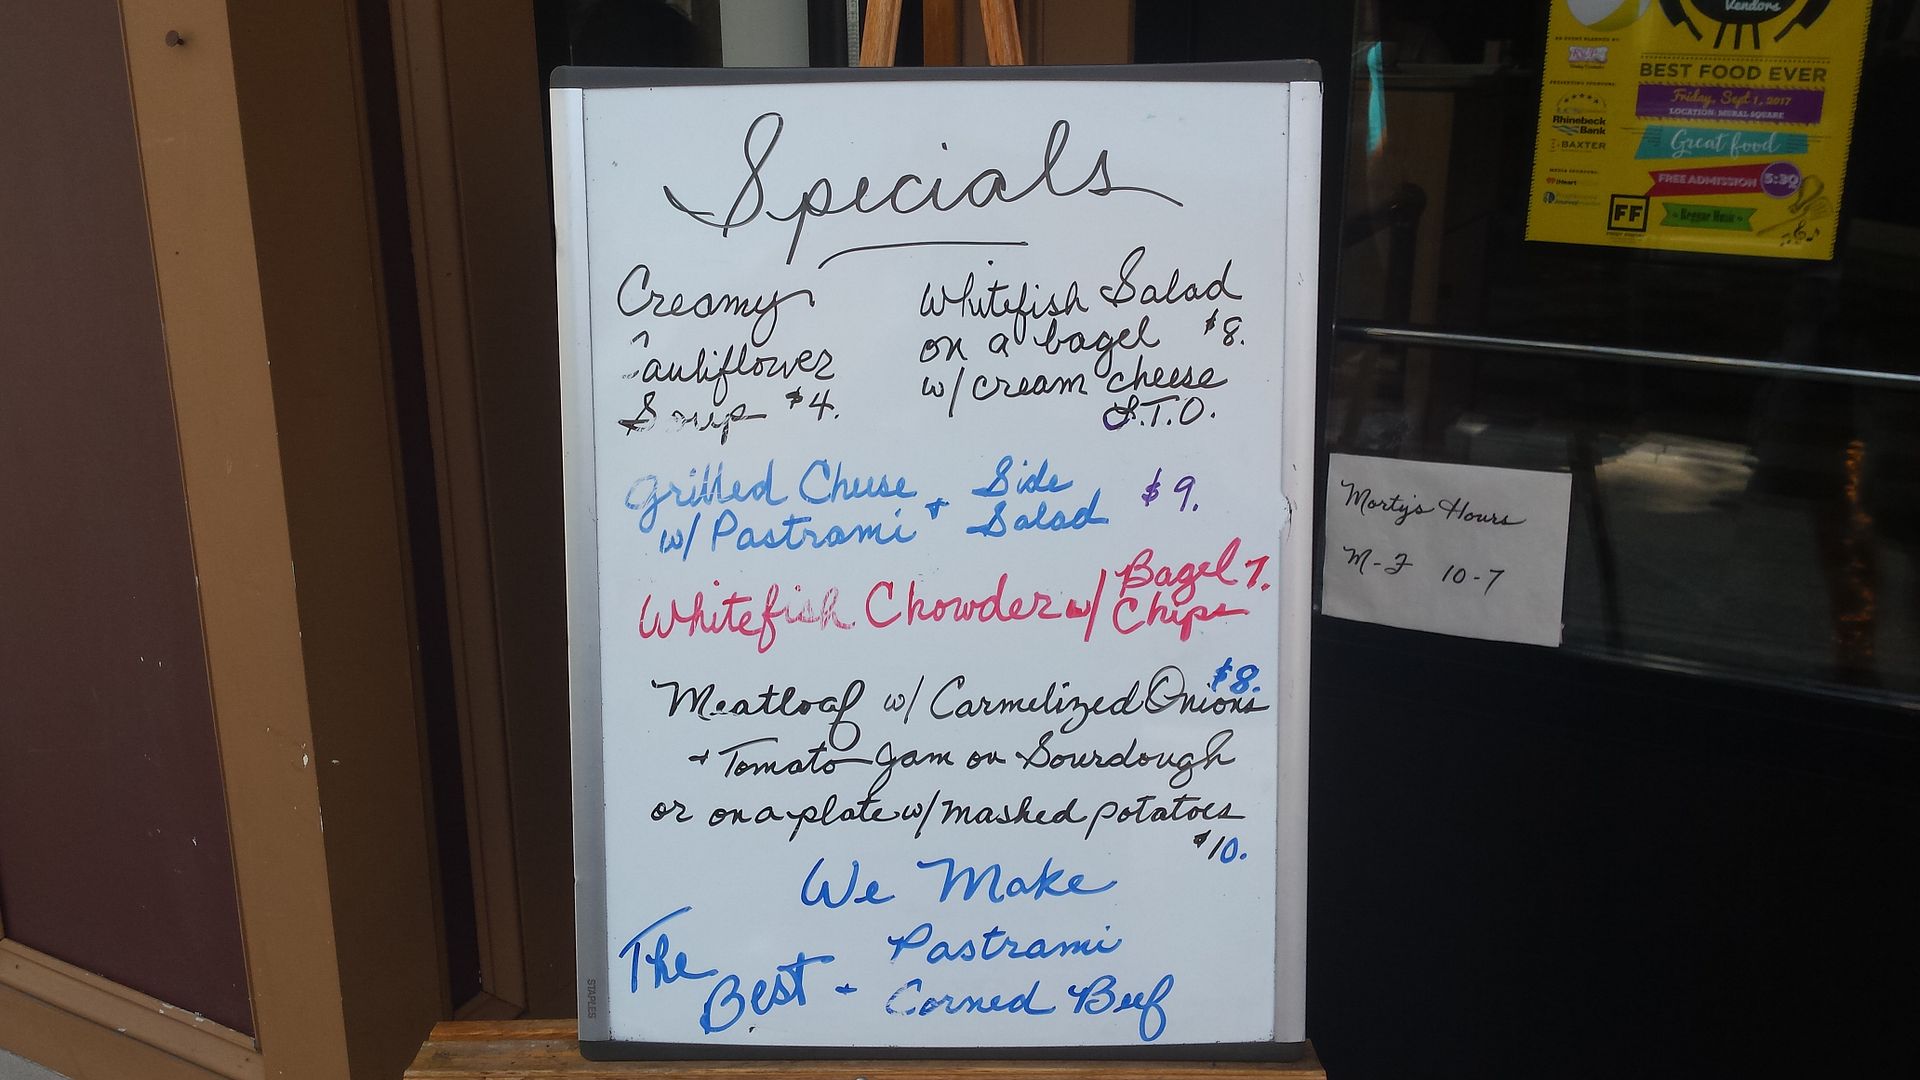 Specials
Creamy
Cauliflower
Soup $4.
Whitefish Salad
on a bagel $8.
w/ cream cheese
L.T.O.
Grilled Cheese + Side
w/ Pastrami Salad $9.
Whitefish Chowder w/ Bagel 7.
Chips
$8.
Meatloaf w/ Carmelized Onions
+ Tomato Jam on Sourdough
or on a plate w/ mashed potatoes
$10.
We Make
The Best - Pastrami
Corned Beef
STAPLES
Morty's Hours
M-F 10-7
Vendors
BEST FOOD EVER
Friday, Sept 1, 2017
LOCATION: MURAL SQUARE
Great food
FREE ADMISSION 5:30
Reggae Music
AN EVENT PLANNED BY:
PRESENTING SPONSORS:
Rhinebeck
Bank
BAXTER
MEDIA SPONSORS:
iHeart
FF